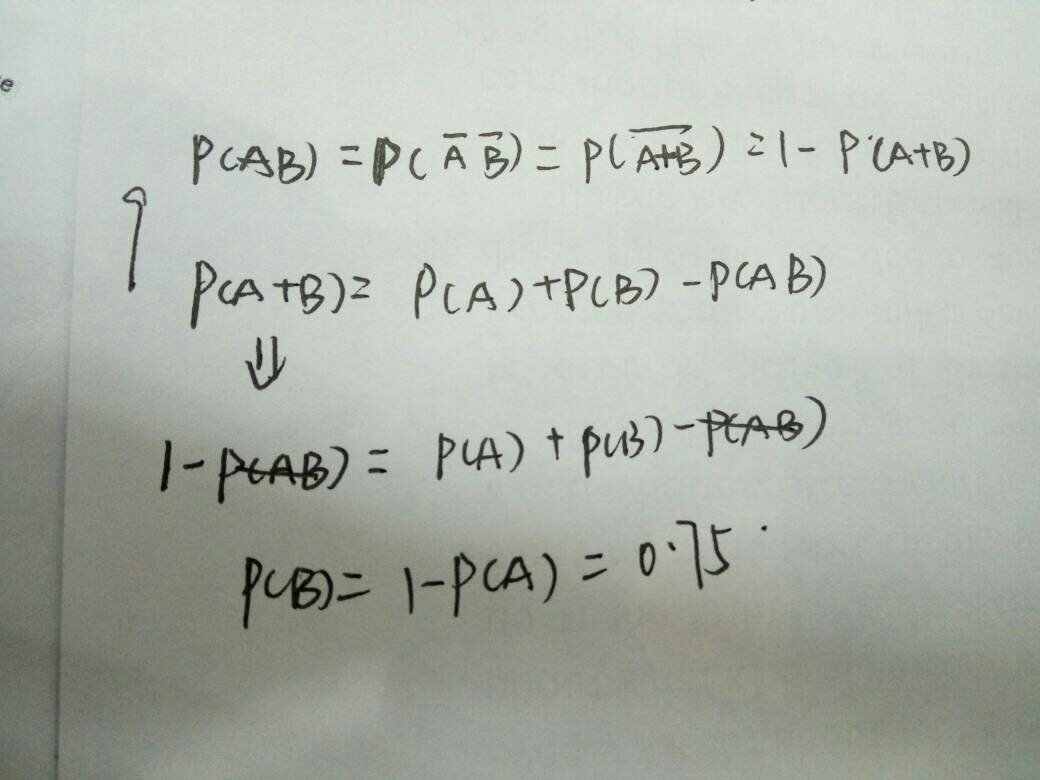 e
P(AB) = P(A̅ B̅) = P(\overline{A+B}) = 1 - P(A+B)
P(A+B) = P(A) + P(B) - P(AB)
⇓
1 - P(AB) = P(A) + P(B) - P(AB)
P(B) = 1 - P(A) = 0.75